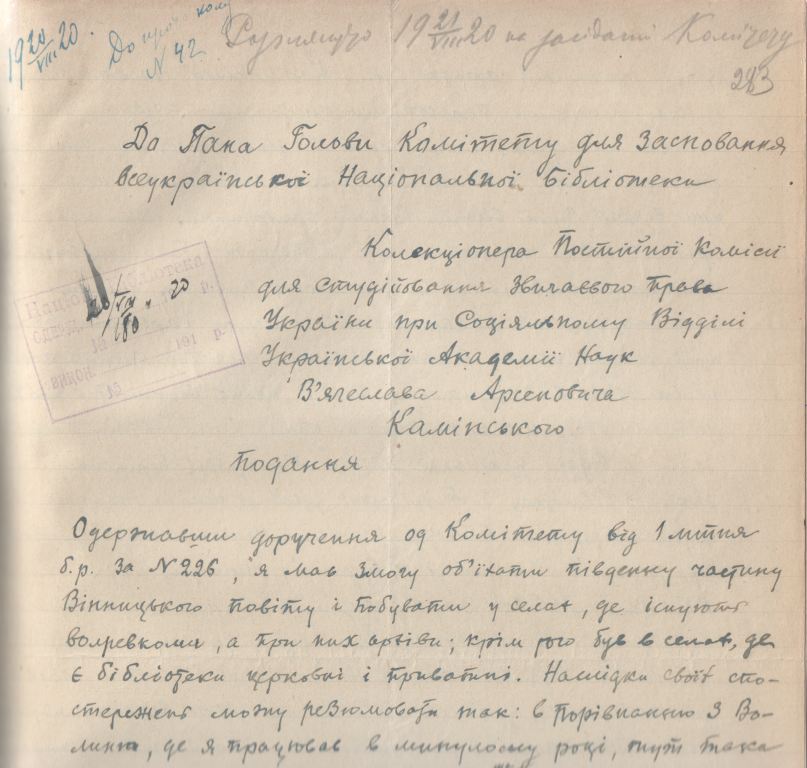 1920 20/VIII.
До прото кому
N 42
Розглянуто 1921/VIII20 на засіданні Комітету
283
До Пана Голови Комітету для Заснования
всеукраїнської Національної Бібліотеки
Колекціонера Постійної Комісії
для студіювання Звичаєвого Права
України при Соціяльному Відділі
Української Академії Наук
В'ячеслава Арсеновича
Камінського
Подання
Одержавши доручення од Комітету від 1 липня
б.р. За N 226, я мав Змогу об'їхати південну частину
Вінницького повіту і побувати у селах, де існують
волревкоми, а при них архіви; крім того був в селах, де
є бібліотеки церковні і приватні. Наслідки своїх спо-
стережень можу резюмовати так: в порівнанню з Во-
линю, де я працював в минулому році, тут така